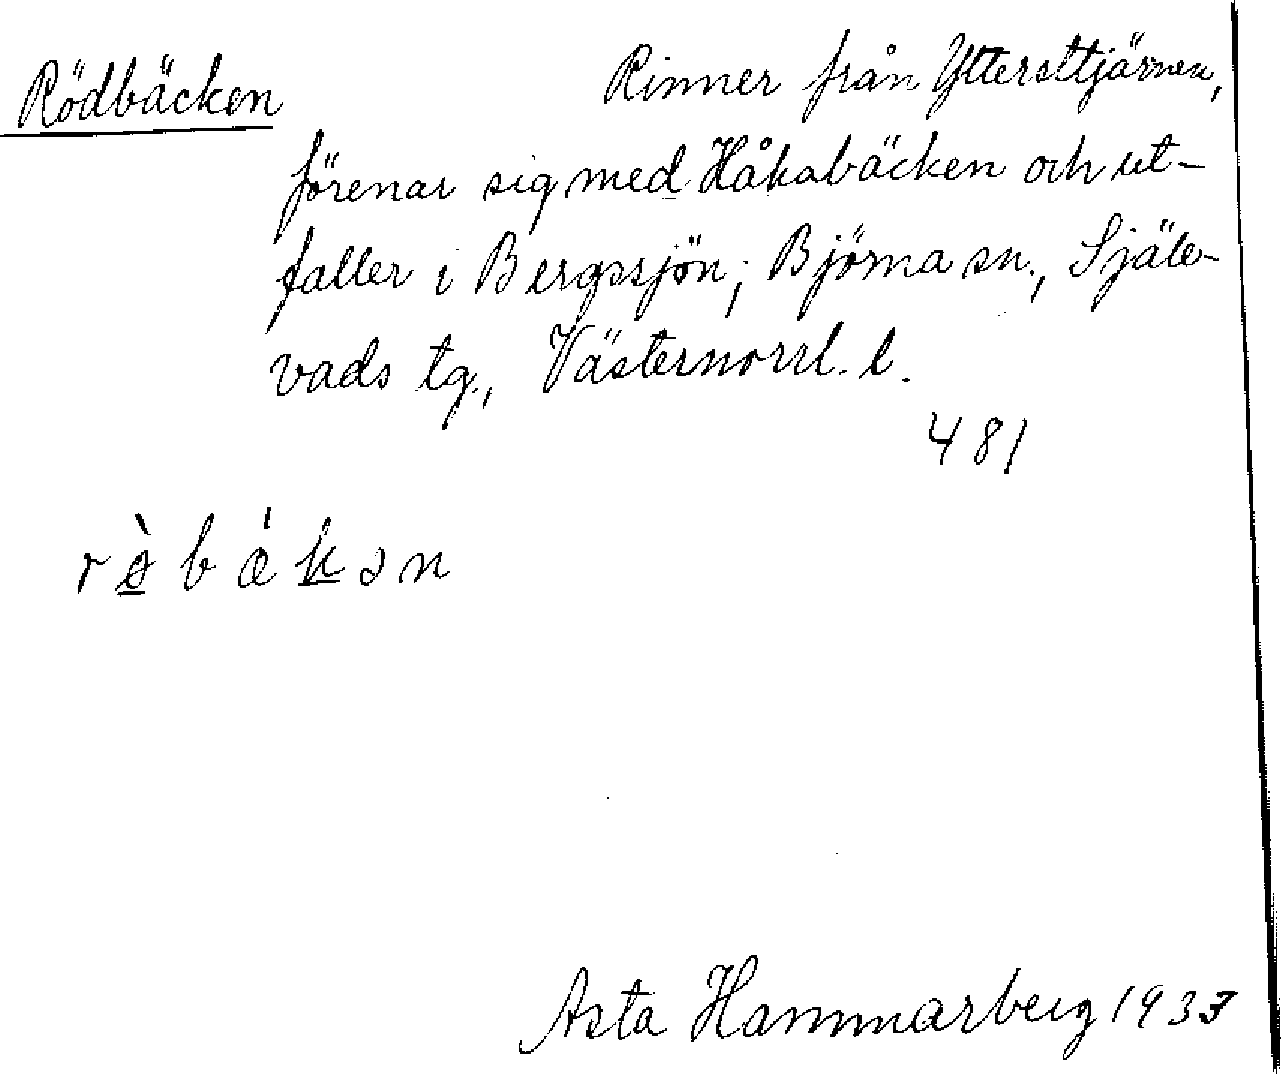 Rödbäcken Rinner från Yttersttjärnen,
förenar sig med Håkabäcken och ut-
faller i Bergssjön; Björna sn., Själe-
vads tg., Västernorrl. l.
481
Asta Hammarberg 1933